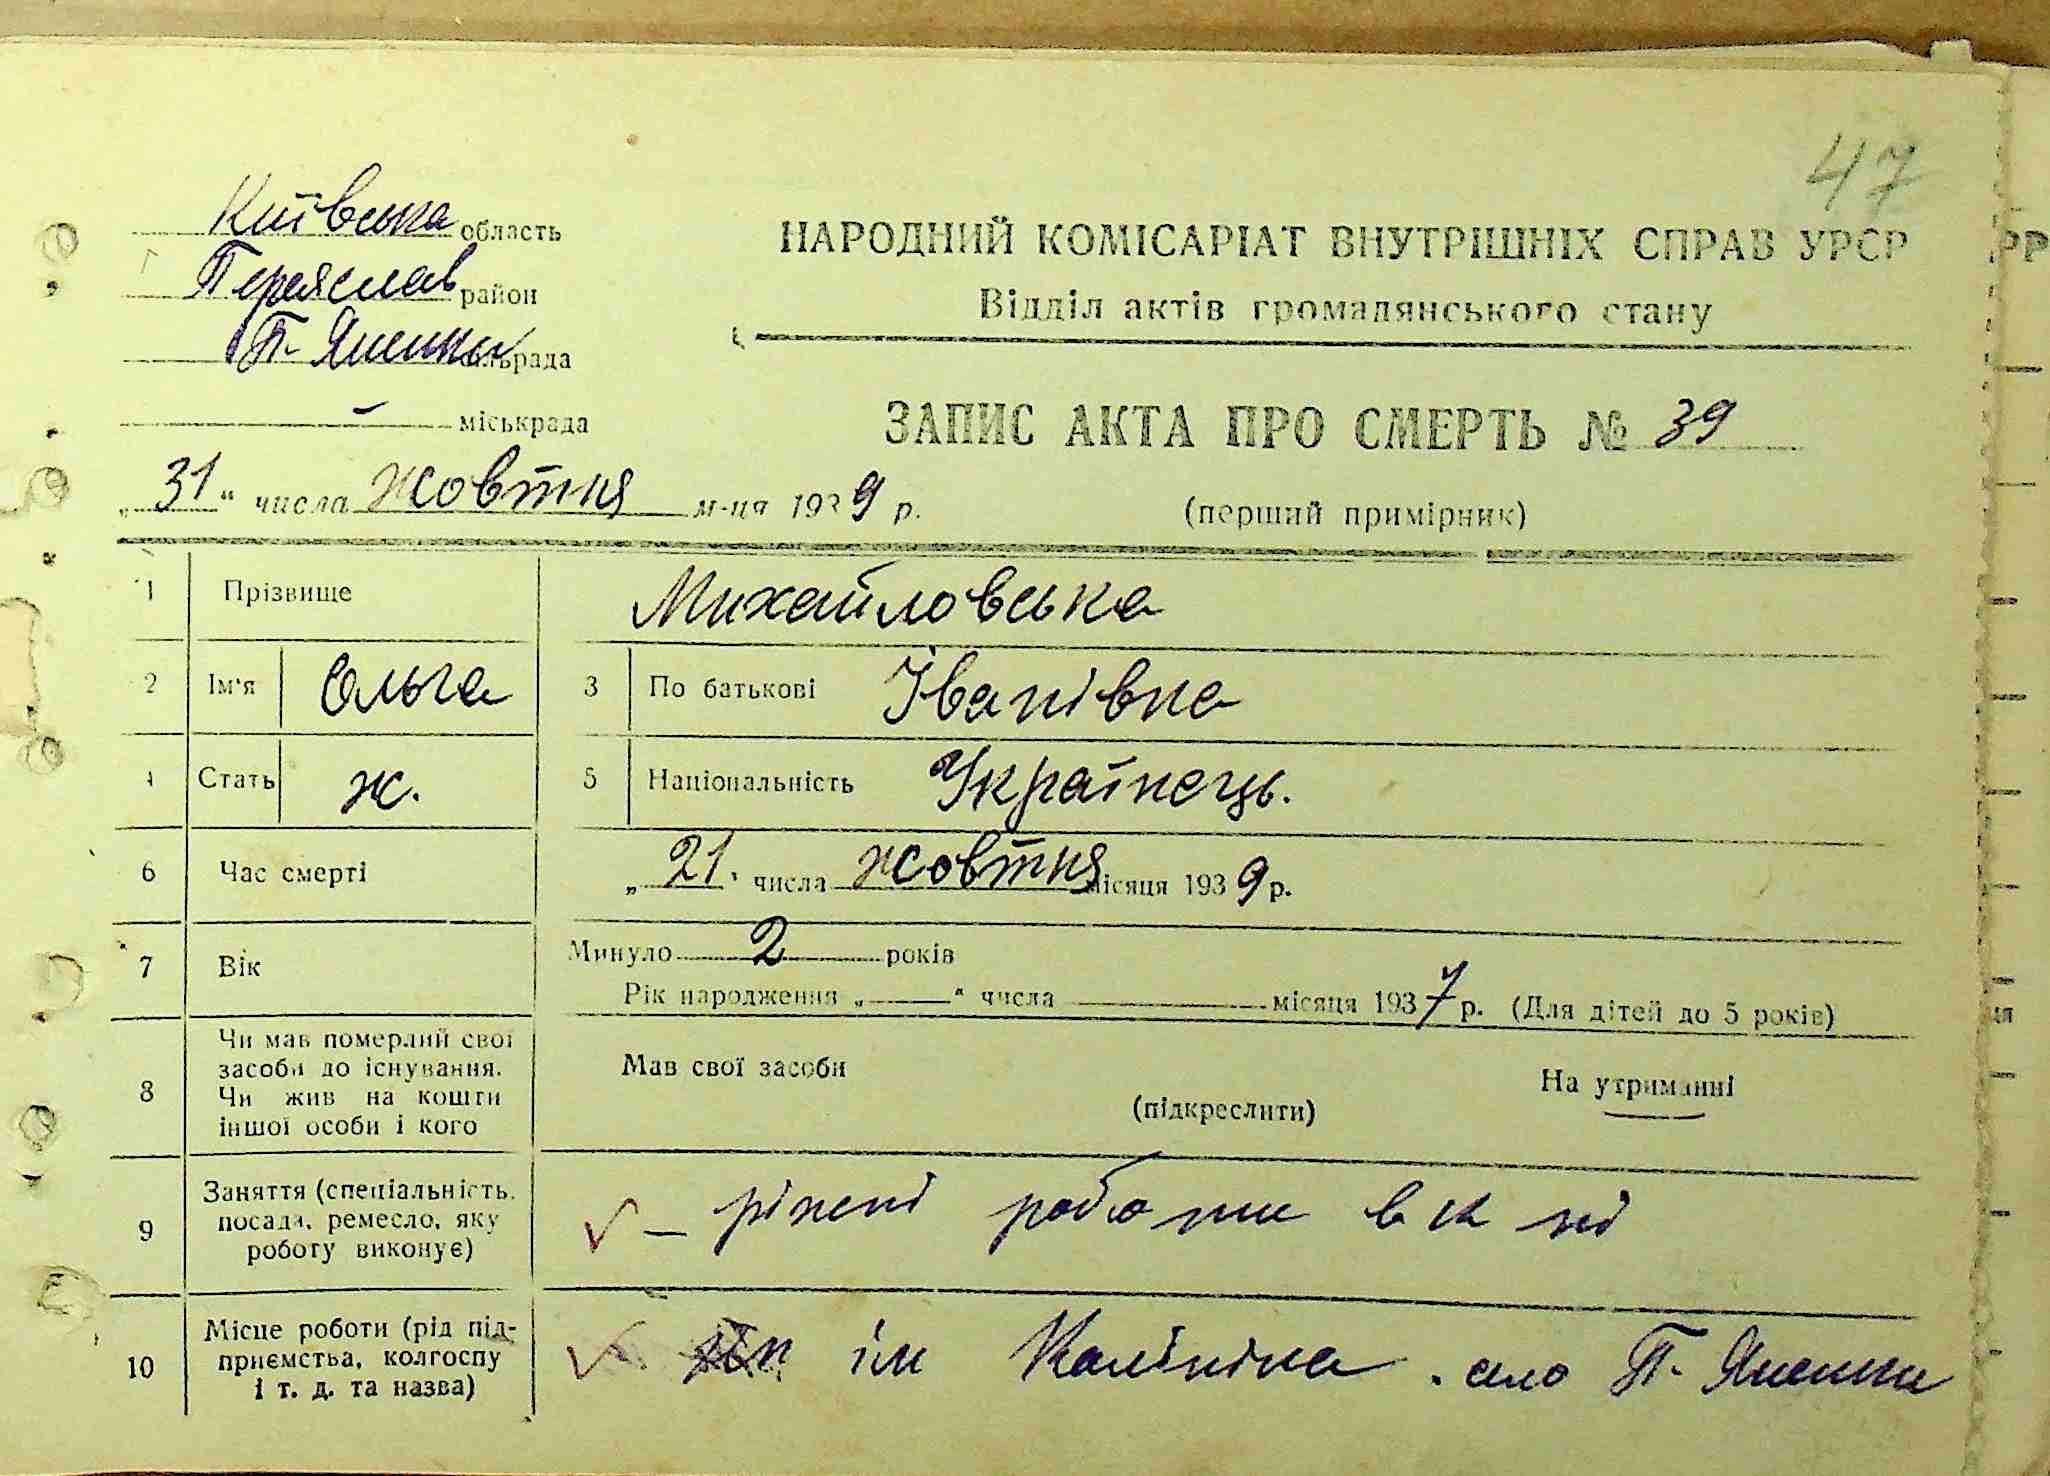 47
Київська область
Переяслав район
П- Яненки сільрада
— міськрада
„31“ числа жовтня м-ця 1939 р.
НАРОДНИЙ КОМІСАРІАТ ВНУТРІШНІХ СПРАВ УРСР
Відділ актів громадянського стану
ЗАПИС АКТА ПРО СМЕРТЬ № 39
(перший примірник)
1 Прізвище Михайловська
2 Ім'я Ольга 3 По батькові Іванівна
4 Стать ж. 5 Національність Українець.
6 Час смерті „21“ числа жовтня місяця 1939 р.
7 Вік Минуло 2 років
Рік народження „—“ числа місяця 1937 р. (Для дітей до 5 років)
8 Чи мав померлий свої засоби до існування. Чи жив на кошти іншої особи і кого Мав свої засоби (підкреслити) На утриманні
9 Заняття (спеціальність, посада, ремесло, яку роботу виконує) — ріжні роботи в к
10 Місце роботи (рід підприємства, колгоспу і т. д. та назва) ім Калініна. село П- Яненки